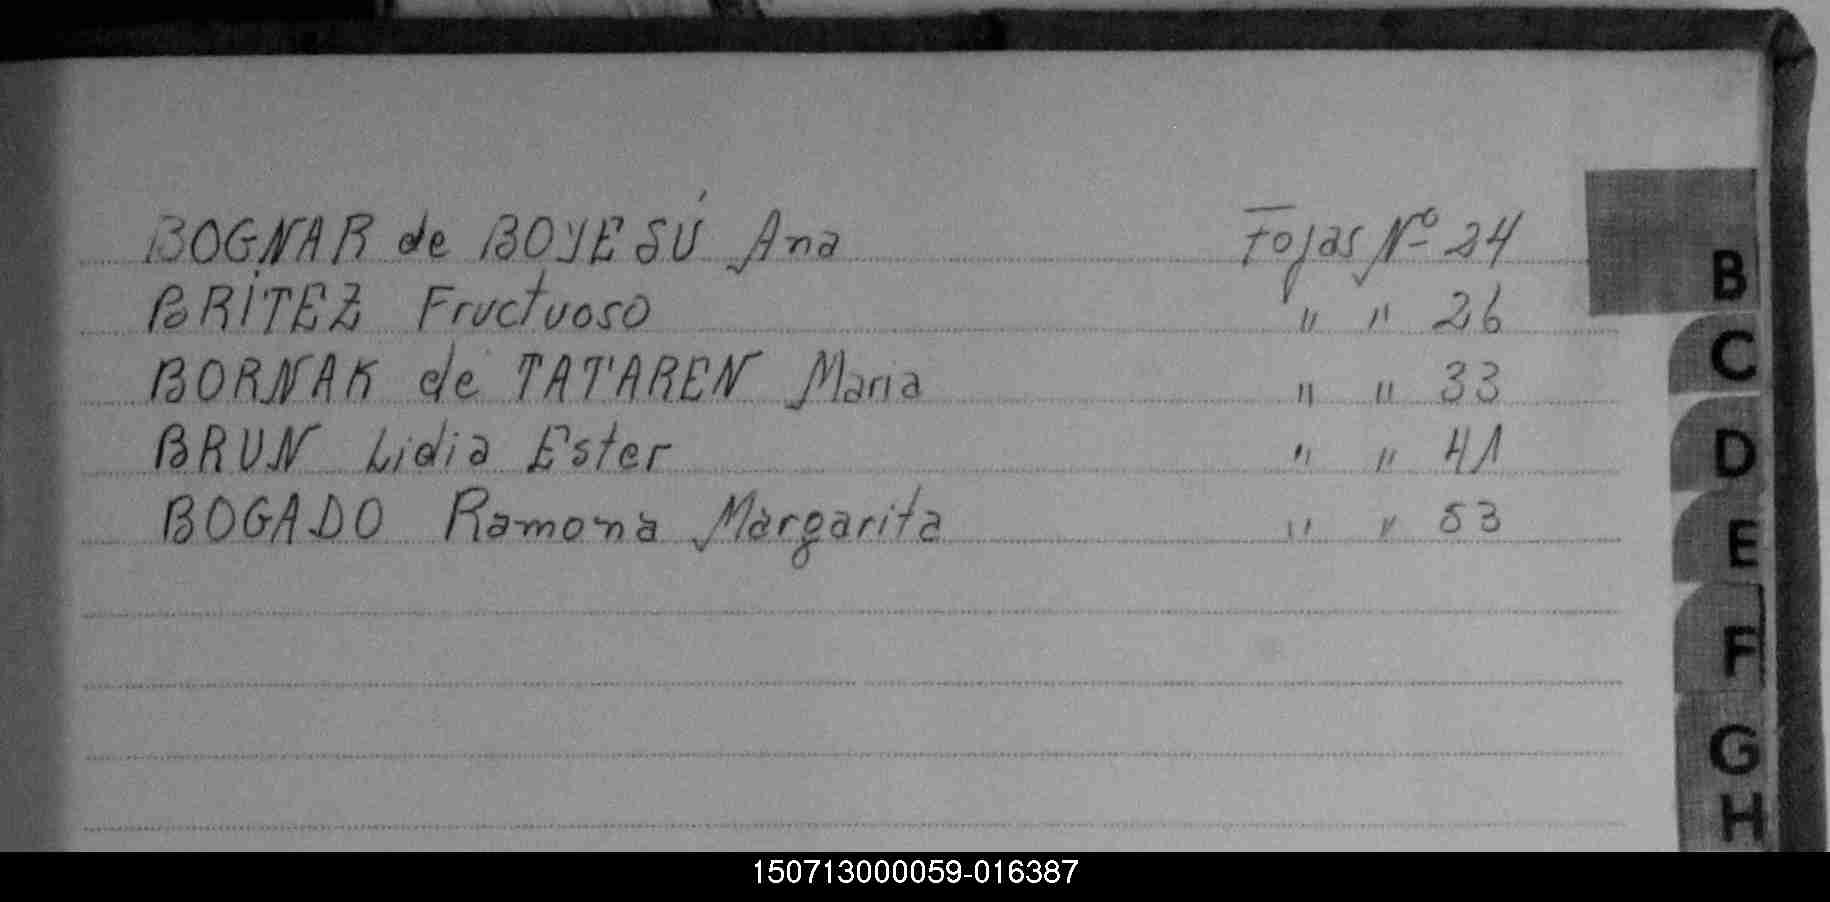 BOGNAR de BOYESÚ Ana Fojas Nº 24
BRITEZ Fructuoso " " 26
BORNAK de TATAREN Maria " " 33
BRUN Lidia Ester " " 41
BOGADO Ramona Margarita " " 53
B
C
D
E
F
G
H
150713000059-016387